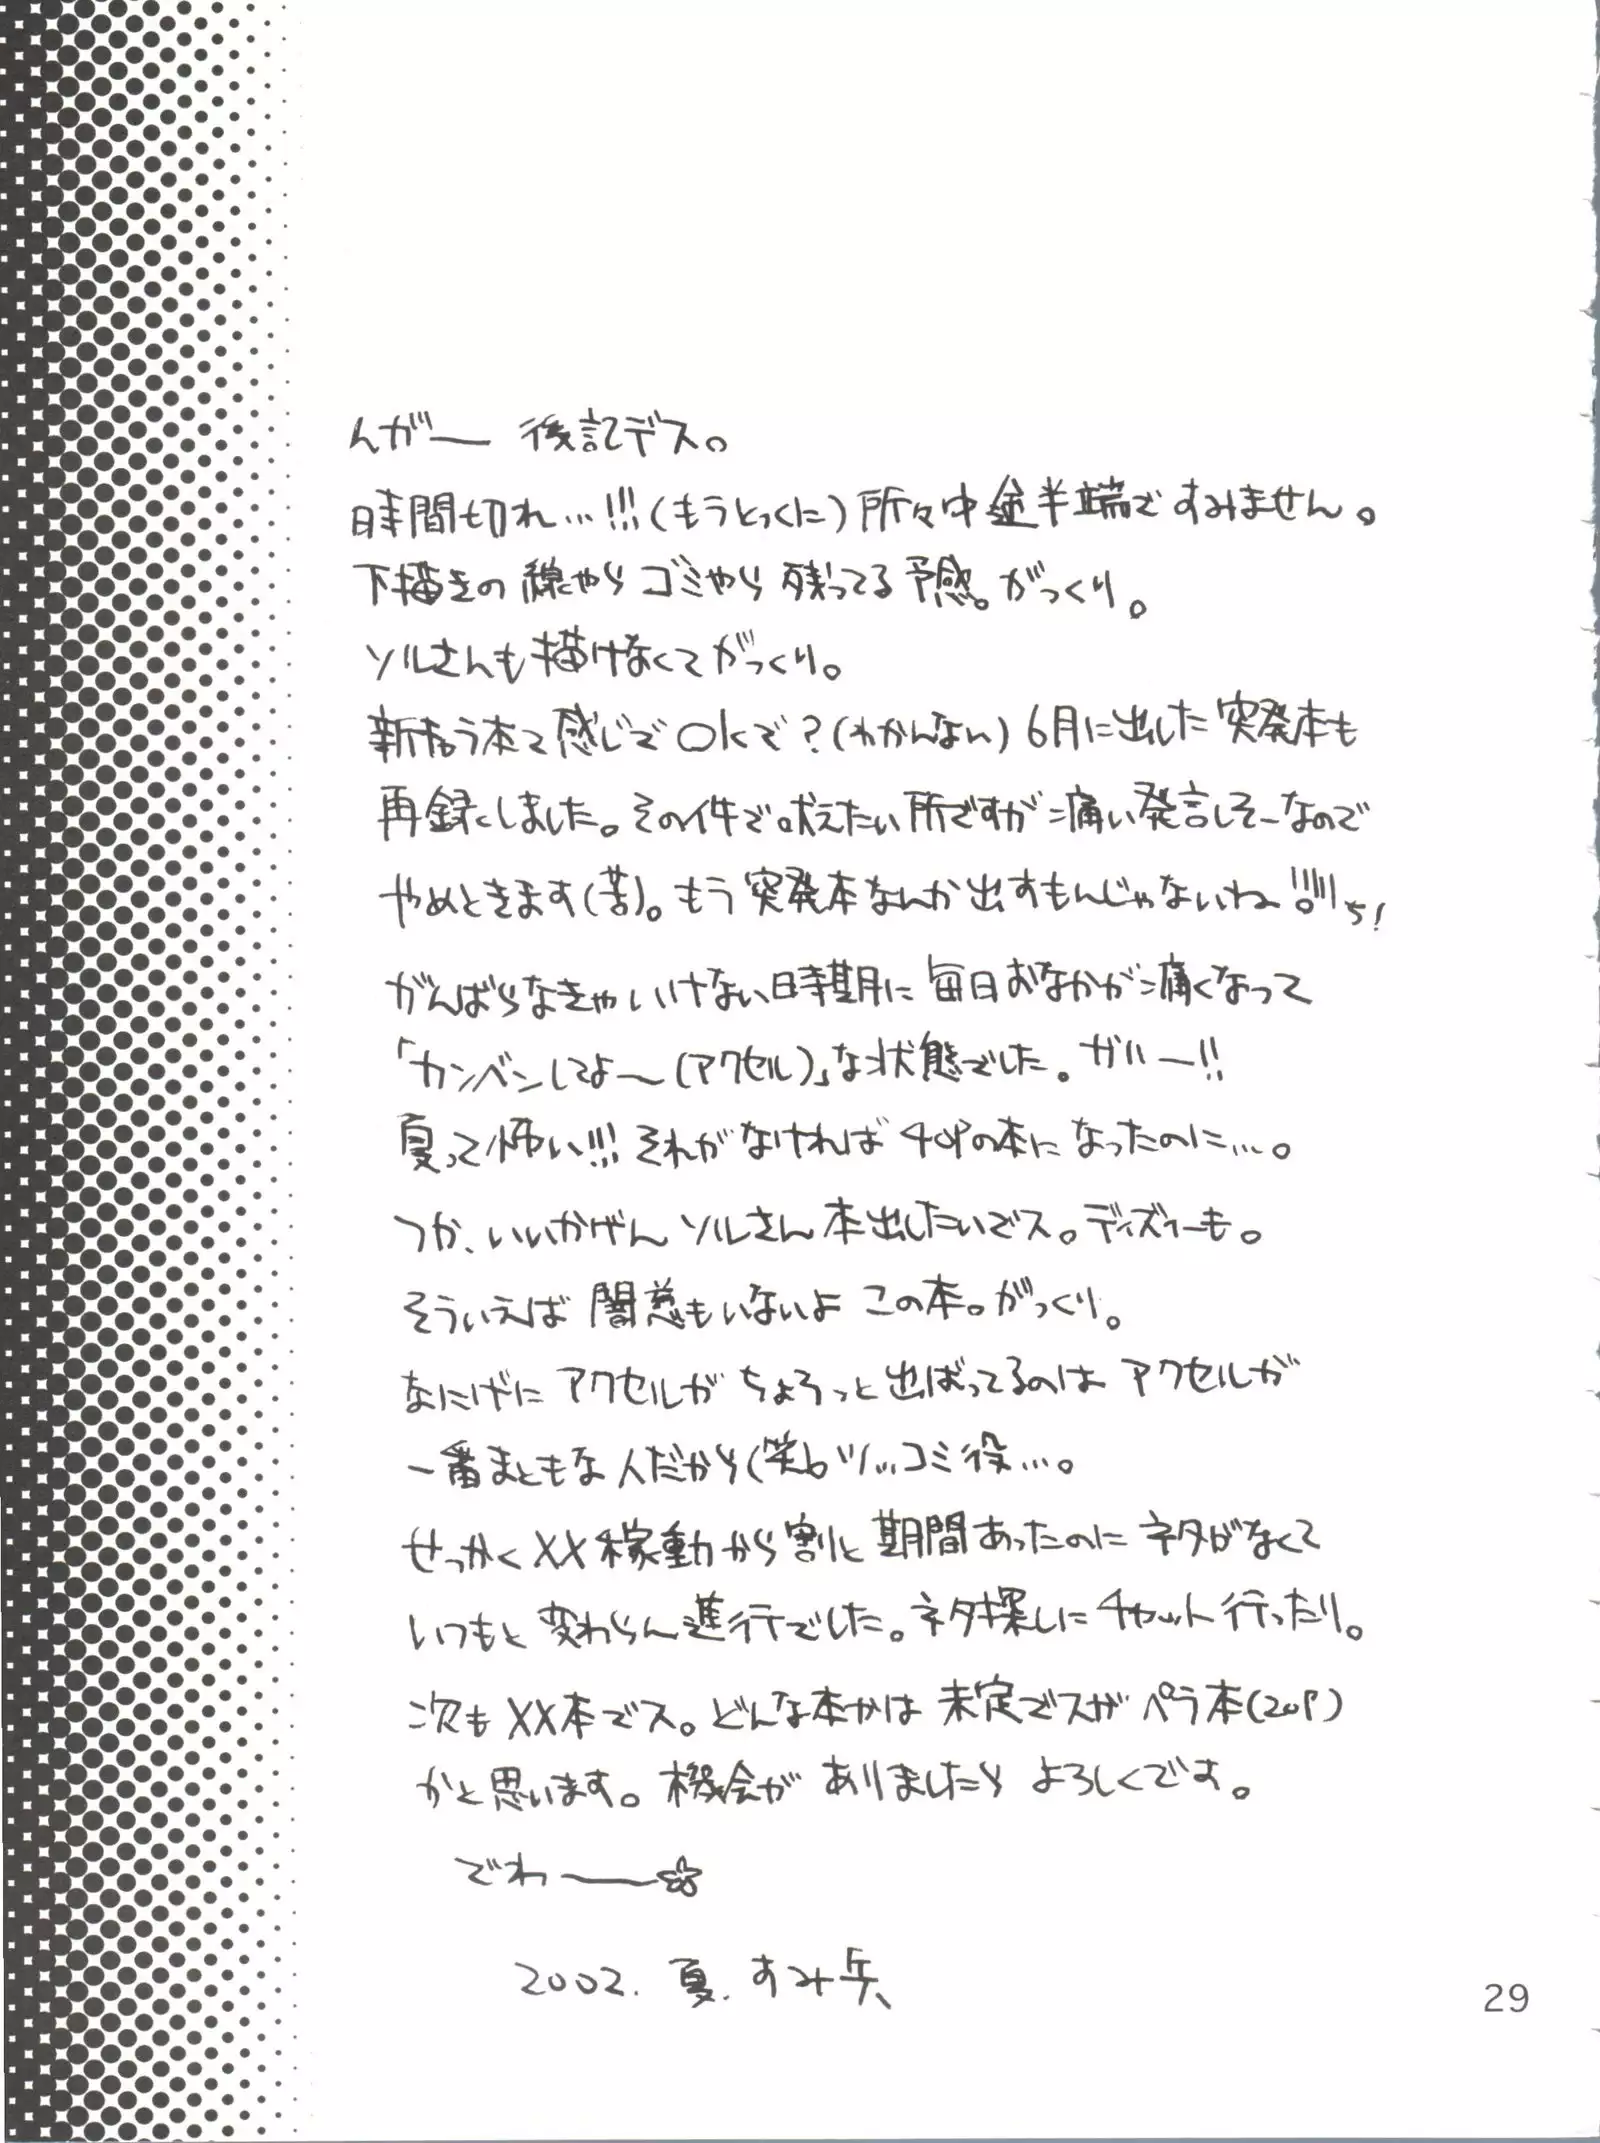 んがー 後記デス。
時間切れ…!!!(もうとっくに)所々中途半端ですみません。
下描きの線やらゴミやら残ってる予感。がっくり。
ソルさんも描けなくてがっくり。
本て感じでOkで?(わかんない)6月に出した突発本も
再録しました。その件で吠えたい所ですが痛い発言しそーなので
やめときます(苦)。もう突発本なんか出すもんじゃないね!!!!!ち!
がんばらなきゃいけない時期に毎日おなかが痛くなって
「カンベンしてよ〜(アクセル)」な状態でした。ガハー!!
夏って怖い!!!それがなければ40Pの本になったのに…。
つか、いいかげんソルさん本出したいでス。ディズィーも。
そういえば闇慈もいないよこの本。がっくり。
なにげにアクセルがちょろっと出ばってるのはアクセルが
一番まともな人だから(笑)。ツッコミ役…。
せっかくXX稼動から割と期間あったのにネタがなくて
いつもと変わらん進行でした。ネタ探しにチャット行ったり。
次もXX本でス。どんな本かは未定でスがペラ本(20P)
かと思います。機会がありましたらよろしくです。
でわー☆
2002.夏.すみ兵
29